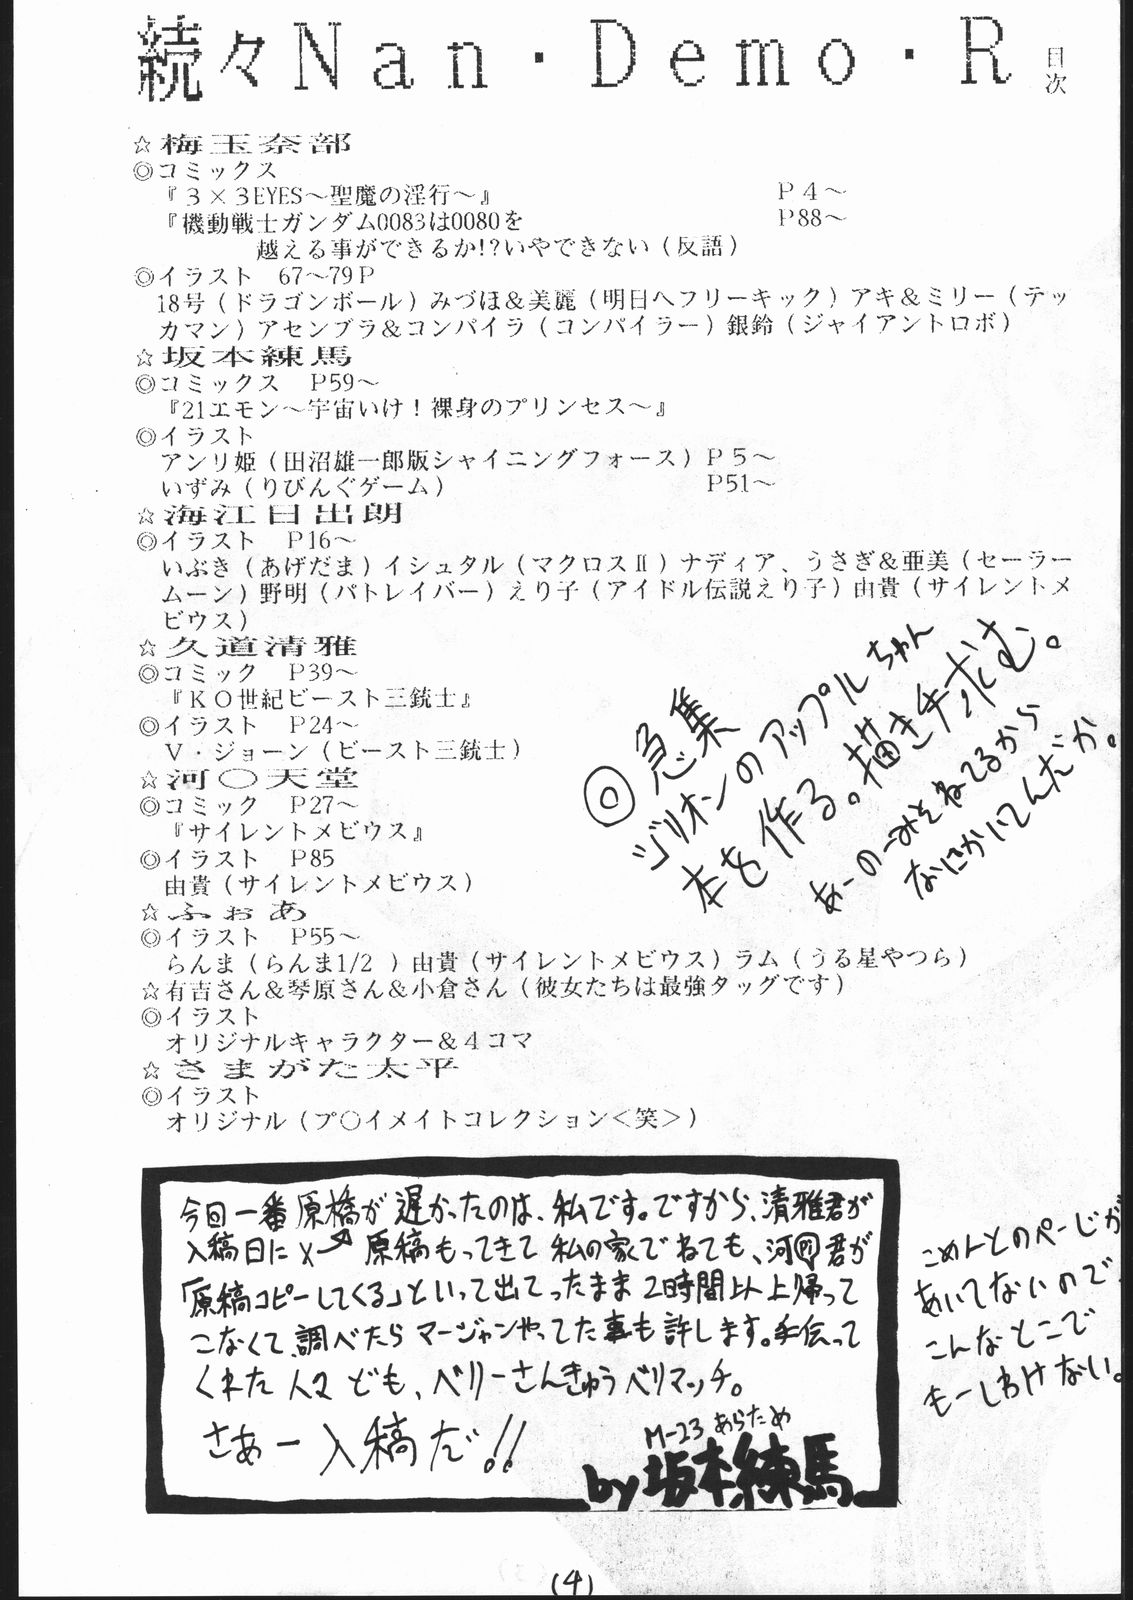 続々Nan・Demo・R 目次
☆梅玉奈部
◎コミックス
『3×3EYES～聖魔の淫行～』 P4～
『機動戦士ガンダム0083は0080を P88～
越える事ができるか!?いやできない（反語）
◎イラスト 67～79P
18号（ドラゴンボール）みづほ＆美麗（明日へフリーキック）アキ＆ミリー（テッ
カマン）アセンブラ＆コンパイラ（コンパイラー）銀鈴（ジャイアントロボ）
☆坂本練馬
◎コミックス P59～
『21エモン～宇宙いけ！裸身のプリンセス～』
◎イラスト
アンリ姫（田沼雄一郎版シャイニングフォース）P5～
いずみ（りびんぐゲーム） P51～
☆海江田出朗
◎イラスト P16～
いぶき（あげだま）イシュタル（マクロスⅡ）ナディア、うさぎ＆亜美（セーラー
ムーン）野明（パトレイバー）えり子（アイドル伝説えり子）由貴（サイレントメ
ビウス）
☆久道清雅
◎コミック P39～
『KO世紀ビースト三銃士』
◎イラスト P24～
V・ジョーン（ビースト三銃士）
☆河〇天堂
◎コミック P27～
『サイレントメビウス』
◎イラスト P85
由貴（サイレントメビウス）
☆ふぉあ
◎イラスト P55～
らんま（らんま1/2 ）由貴（サイレントメビウス）ラム（うる星やつら）
☆有吉さん＆琴原さん＆小倉さん（彼女たちは最強タッグです）
◎イラスト
オリジナルキャラクター＆4コマ
☆さまがた太平
◎イラスト
オリジナル（プ〇イメイトコレクション＜笑＞）
◎急集
ジリオンのアップルちゃん
本を作る。描き手求む。
あーのーみそねてるから
なにかいてんだか。
今回一番原稿が遅かったのは、私です。ですから、清雅君が
入稿日に 原稿もってきて私の家でねても、河 君が
「原稿コピーしてくる」といって出てったまま2時間以上帰って
こなくて、調べたらマージャンやってた事も許します。手伝って
くれた人々ども、ベリーさんきゅうベリマッチ。
さあー入稿だ!!
M-23 あらため
by坂本練馬
こめんとのぺーじが
あいてないので、
こんなとこで
もーしわけない。
(4)